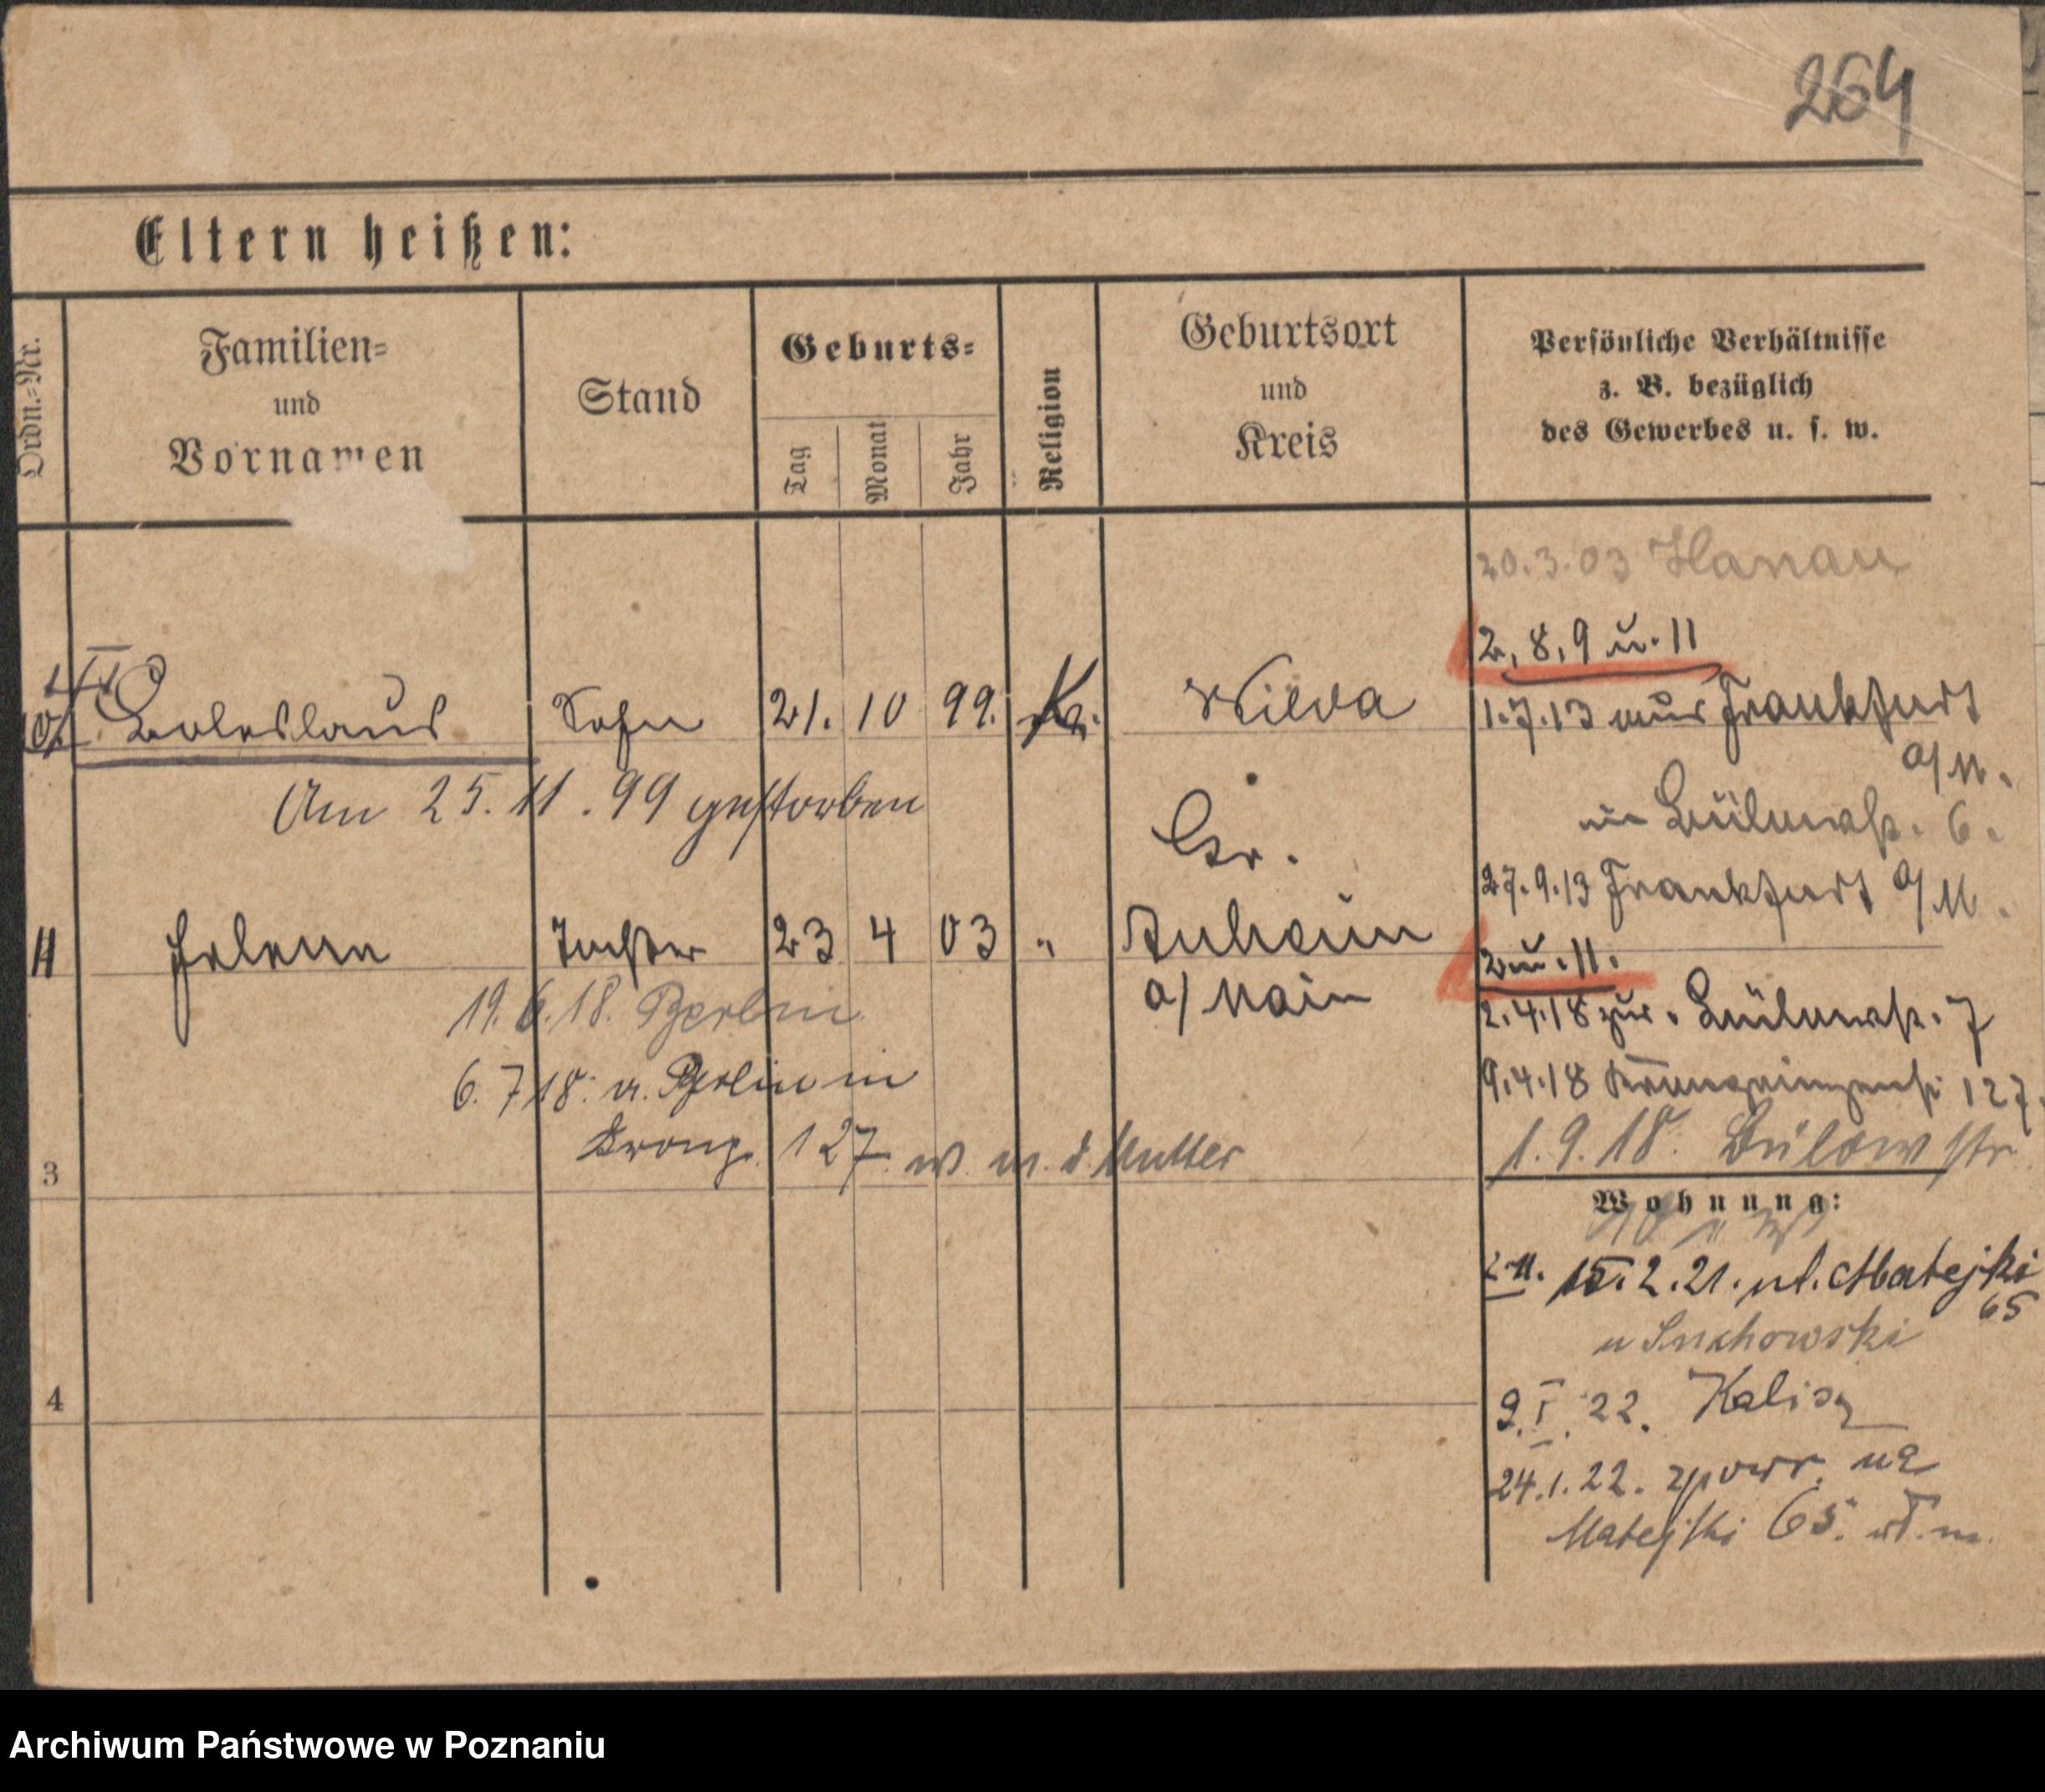 264
Eltern heißen:
Ordn.-Nr.
Familien-
und
Vornamen
Stand
Geburts-
Tag
Monat
Jahr
Religion
Geburtsort
und
Kreis
Persönliche Verhältnisse
z. B. bezüglich
des Gewerbes u. s. w.
20.3.03 Hanau
2, 8, 9 u. 11
Boleslaus Sohn 21. 10 99. K. Wilda
1.7.13 aus Frankfurt
a/M.
Am 25. 11. 99 gestorben
in Bülowstr. 6.
Gr.
27.9.13 Frankfurt a/M.
11 Helena Tochter 23 4 03 " Auheim
a/Main
2 u. 11.
19.6.18. Berlin
2.4.18 zur. Bülowstr. 7
6.7.18. v. Berlin in
9.4.18 Kronprinzenstr 127.
Kronp. 127 w. m. d. Mutter
1.9.18. Bülowstr
3
Wohnung:
15.2.21. ul. Matejki
65
u Suchowski
4
9.I.22. Kalisz
24.1.22. zpowr. na
Matejki 65.
Archiwum Państwowe w Poznaniu